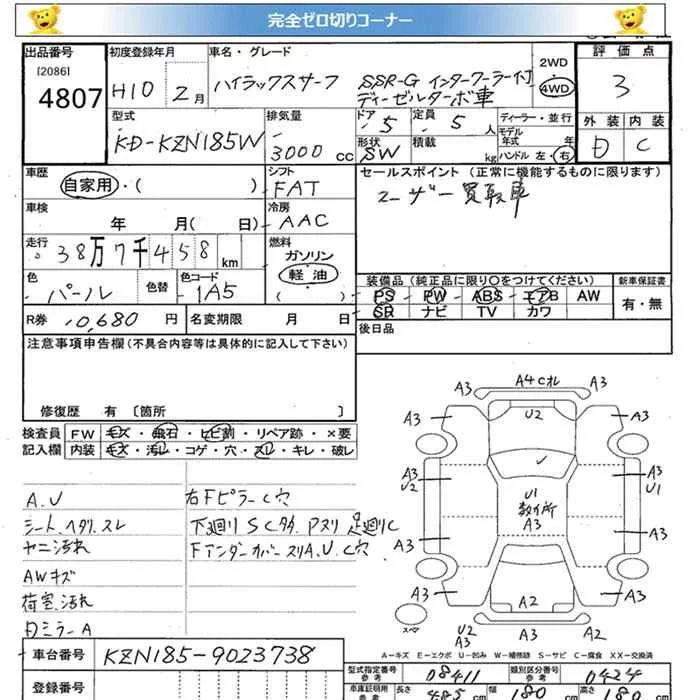 完全ゼロ切りコーナー
出品番号 初度登録年月 車名・グレード 2WD 評価点
[2086] 4807 H10 2月 ハイラックスサーフ SSR-G インタークーラー付 4WD 3
ディーゼルターボ車
型式 排気量 ドア 定員 ディーラー・並行 外装 内装
KD-KZN185W 3000 cc 5 5人 モデル年式 年 D C
形状 積載
SW kg ハンドル 左・右
車歴 シフト セールスポイント (正常に機能するものに限ります)
自家用・( ) FAT ユーザー買取車
車検 冷房
年 月( 日) AAC
走行 燃料
38万7千458km ガソリン
軽油
色 色替 色コード ( ) 装備品 (純正品に限り○をつけてください) 新車保証書
パール 1A5 PS PW ABS エアB AW 有・無
R券 10,680円 名変期限 月 日 SR ナビ TV カワ
注意事項申告欄 (不具合内容等は具体的に記入して下さい) 後日品
修復歴 有 〔箇所 〕
検査員 FW キズ・飛石・ヒビ割・リペア跡・×要
記入欄 内装 キズ・汚レ・コゲ・穴・スレ・キレ・破レ
A.U 右Fピラー C穴
シート ヘタリ、スレ 下廻り SCタタ、Pヌリ 足廻りC
ヤニ汚れ Fアンダーカバー スリA.U.C穴
AWキズ
荷室汚れ
Dミラー A
A3 A4 Cオレ A3
A3 U2 A3
A3 U2 A3 U1
U1 数ヶ所 A3
A3 A3
A3 A2 A3
スペア U2 A3 A3 A2
A－キズ E－エクボ U－凹み W－補修跡 S－サビ C－腐食 XX－交換済
車台番号 KZN185-9023738
型式指定番号 参考 08411 類別区分番号 参考 0424
登録番号
車庫証明用 参考 長さ 485 cm 幅 180 cm 高さ 180 cm